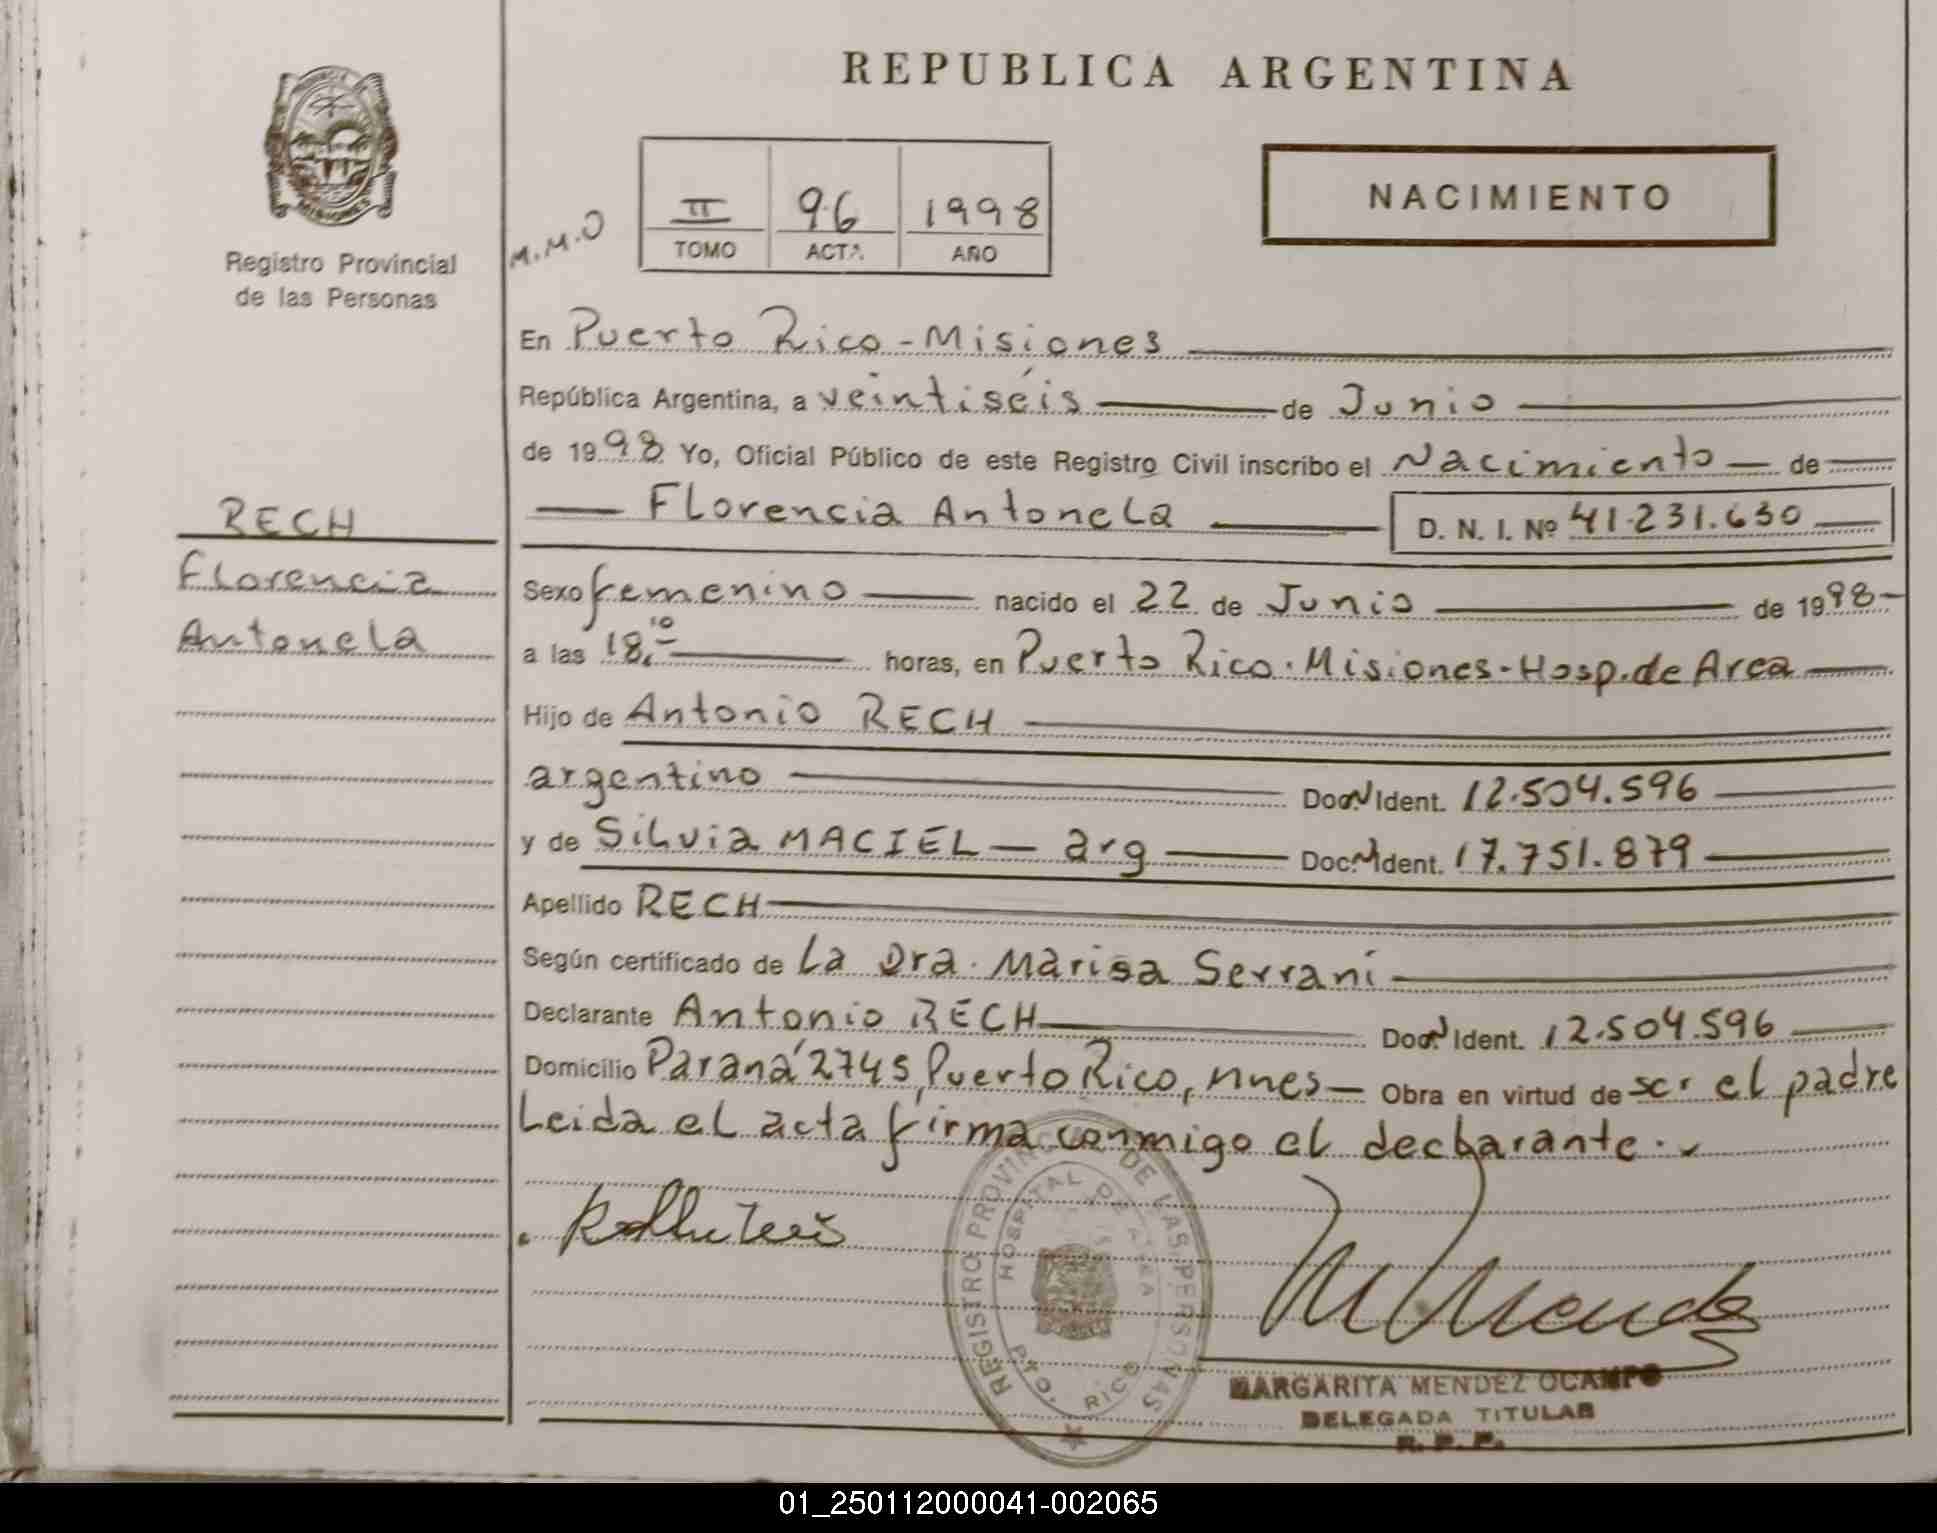 REPUBLICA ARGENTINA
MISIONES
Registro Provincial
de las Personas
M.M.O
II 96 1998
TOMO ACTA AÑO
NACIMIENTO
En Puerto Rico - Misiones
República Argentina, a veintiséis de Junio
de 1998 Yo, Oficial Público de este Registro Civil inscribo el Nacimiento de
Florencia Antonela D. N. I. Nº 41.231.630
RECH
Florencia
Antonela
Sexo femenino nacido el 22 de Junio de 1998
a las 18.10 horas, en Puerto Rico. Misiones - Hosp. de Area
Hijo de Antonio RECH
argentino Doc. Ident. 12.504.596
y de Silvia MACIEL - arg Doc. Ident. 17.751.879
Apellido RECH
Según certificado de La Dra. Marisa Serrani
Declarante Antonio RECH Doc. Ident. 12.504.596
Domicilio Paraná 2745, Puerto Rico, Mnes Obra en virtud de ser el padre
Leida el acta firma conmigo el declarante.
REGISTRO PROVINCIAL DE LAS PERSONAS
HOSPITAL DE AREA
PTO. RICO
MARGARITA MENDEZ OCAMPO
DELEGADA TITULAR
R. P. P.
01_250112000041-002065